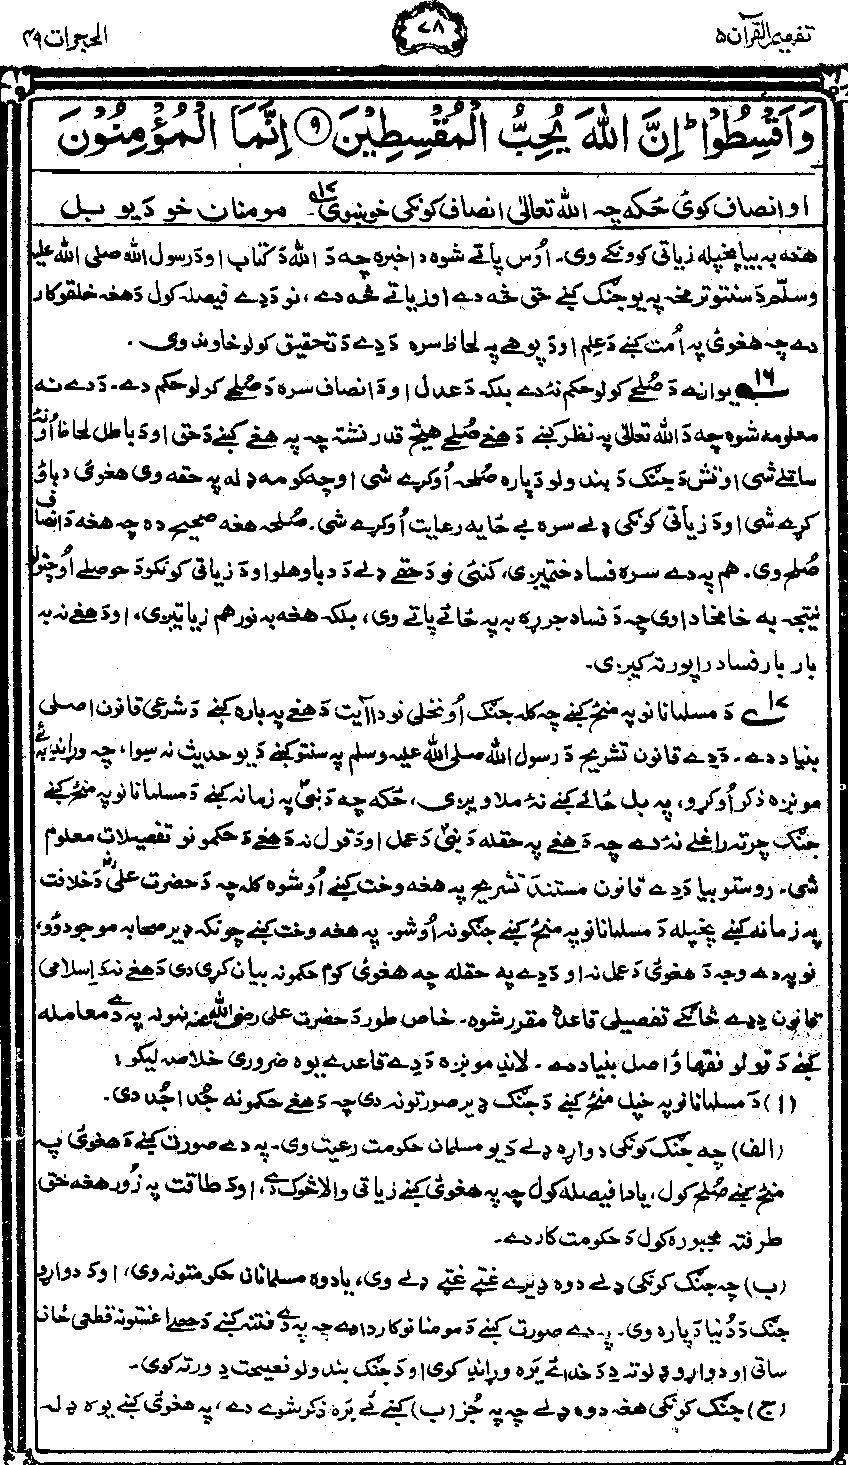 تفهيم القرآن ۵
۷۸
الحجرات ۴۹
وَاَقْسِطُوْا ؕ اِنَّ اللّٰهَ يُحِبُّ الْمُقْسِطِيْنَ ۹ اِنَّمَا الْمُؤْمِنُوْنَ
او انصاف کوئ ځکه چه الله تعالیٰ انصاف کونکی خوښوی ۱۷ ـ مومنان خو د یو بل
هغه به بیا پخپله زیاتی کوونکے وی۔ اوُس پاتے شوه دا خبره چه دَ اللهَ دَ کتاب او دَ رسول الله صلی الله علیه
وسلّم دَ سنتو ترمخه په یو جنګ کښے حق څه دے او زیاتے څه دے، نو دَ دے فیصله کول دَ هغه خلقو کار
دے چه هغوئ په اُمت کښے دَ عِلم او دَ پوهے په لحاظ سره دَ دے دَ تحقیق کولو خاوند وی .
۱۶ یوازے دَ صُلحے کولو حکم نۀ دے بلکہ دَ عدل او دَ انصاف سره دَ صُلحے کولو حکم دے۔ دَ دے نه
معلومه شوه چه دَ الله تعالیٰ په نظر کښے دَ هغے صُلحے هیڅ قدر نشته چه په هغے کښے دَ حق او دَ باطل لحاظ اُونۀ
ساتلے شی او تش دَ جنګ دَ بندولو دَ پاره صُلحه اُوکړے شی او چه کومه ډله په حقه وی هغوئ دباؤ
کړے شی او دَ زیاتی کونکی ډلے سره بے ځایه رعایت اُوکړے شی۔ صُلحه هغه صحیح ده چه هغه دَ انصاف
صُلح وی۔ هم په دے سره فساد ختمیږی، کنئی نو دَ حقے ډلے دَ دباوهلو او دَ زیاتی کونکو دَ حوصلے اُوچتولو
نیتجه به خامخا دا وی چه دَ فساد جرړه به په ځائے پاتے وی، بلکہ هغه به نور هم زیاتیږی، او دَ هغے نه به
بار بار فساد راپورته کیږی۔
۱۷ دَ مسلمانانو په منځ کښے چه کله جنګ اُونخلی نو دا آیت دَ هغے په باره کښے دَ شرعی قانون اصلی
بنیاد دے۔ دَ دے قانون تشریح دَ رسول الله صلی الله علیه وسلم په سنتو کښے دَ یو حدیث نه سِوا، چه وړاندے به ئے
مونږه ذکر اُوکړو، په بل ځائے کښے نۀ ملاویږی، ځکه چه دَ نبیؐ په زمانه کښے دَ مسلمانانو په منځ کښے
جنګ چرته راغلے نۀ دے چه دَ هغے په حقله دَ نبیؐ دَ عمل او دَ قول نه دَ هغے دَ حکمونو تفصیلات معلوم
شی۔ روستو بیا دَ دے قانون مستند تشریح په هغه وخت کښے اُوشوه کله چه دَ حضرت علیؓ دَ خلافت
په زمانه کښے پخپله دَ مسلمانانو په منځ کښے جنګونه اُوشو۔ په هغه وخت کښے چونکه ډیر صحابه موجود وُو،
نو په دے وجه دَ هغوئ دَ عمل نه او دَ دے په حقله چه هغوئ کوم حکمونه بیان کړی دی دَ هغے نه دَ اِسلامی
قانون دِ دے څانګے تفصیلی قاعده مقرر شوه۔ خاص طور دَ حضرت علی رضی الله عنه نمونه په دے معامله
کښے دَ ټولو فقهاؤ اصل بنیاد دے۔ لاندے مونږه دَ دے قاعدے یوه ضروری خلاصه لیکو :
(۱) دَ مسلمانانو په خپل منځ کښے دَ جنګ ډیر صورتونه دی چه دَ هغے حکمونه جُدا جُدا دی.
(الف) چه جنګ کونکی دواړه ډلے دَ یو مسلمان حکومت رعیت وی۔ په دے صورت کښے دَ هغوئ په
منځ کښے صُلح کول، یا دا فیصله کول چه په هغوئ کښے زیاتی والا څوک دے، او دَ طاقت په زور هغه حق
طرفته مجبوره کول دَ حکومت کار دے۔
(ب) چه جنګ کونکی ډلے دوه ډیرے غټے غټے ډلے وی، یا دوه مسلمانان حکومتونه وی، او دَ دواړو
جنګ دَ دُنیا دَ پاره وی۔ په دے صورت کښے دَ مومنانو کار دا دے چه په دے فتنه کښے دَ حصه اغستو نه قطعی ځان
ساتی او دواړو ډلو ته دِ دَ خدائے یَره وړاندے کوی او دَ جنګ بندولو نصیحت دِ ورته کوی۔
(ج) جنګ کونکی هغه دوه ډلے چه په جُز (ب) کښے ئے یَره ذکر شوے دے، په هغوئ کښے یوه ډله